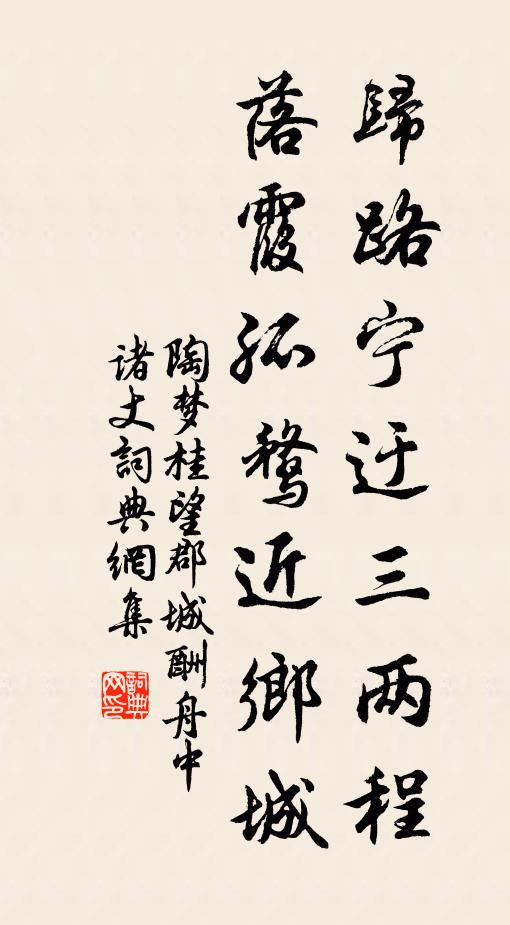 歸路宁迂三两程
落霞孤鶩近鄉城
陶梦桂望郡城酬舟中
诸丈詞典網集
詞典网印